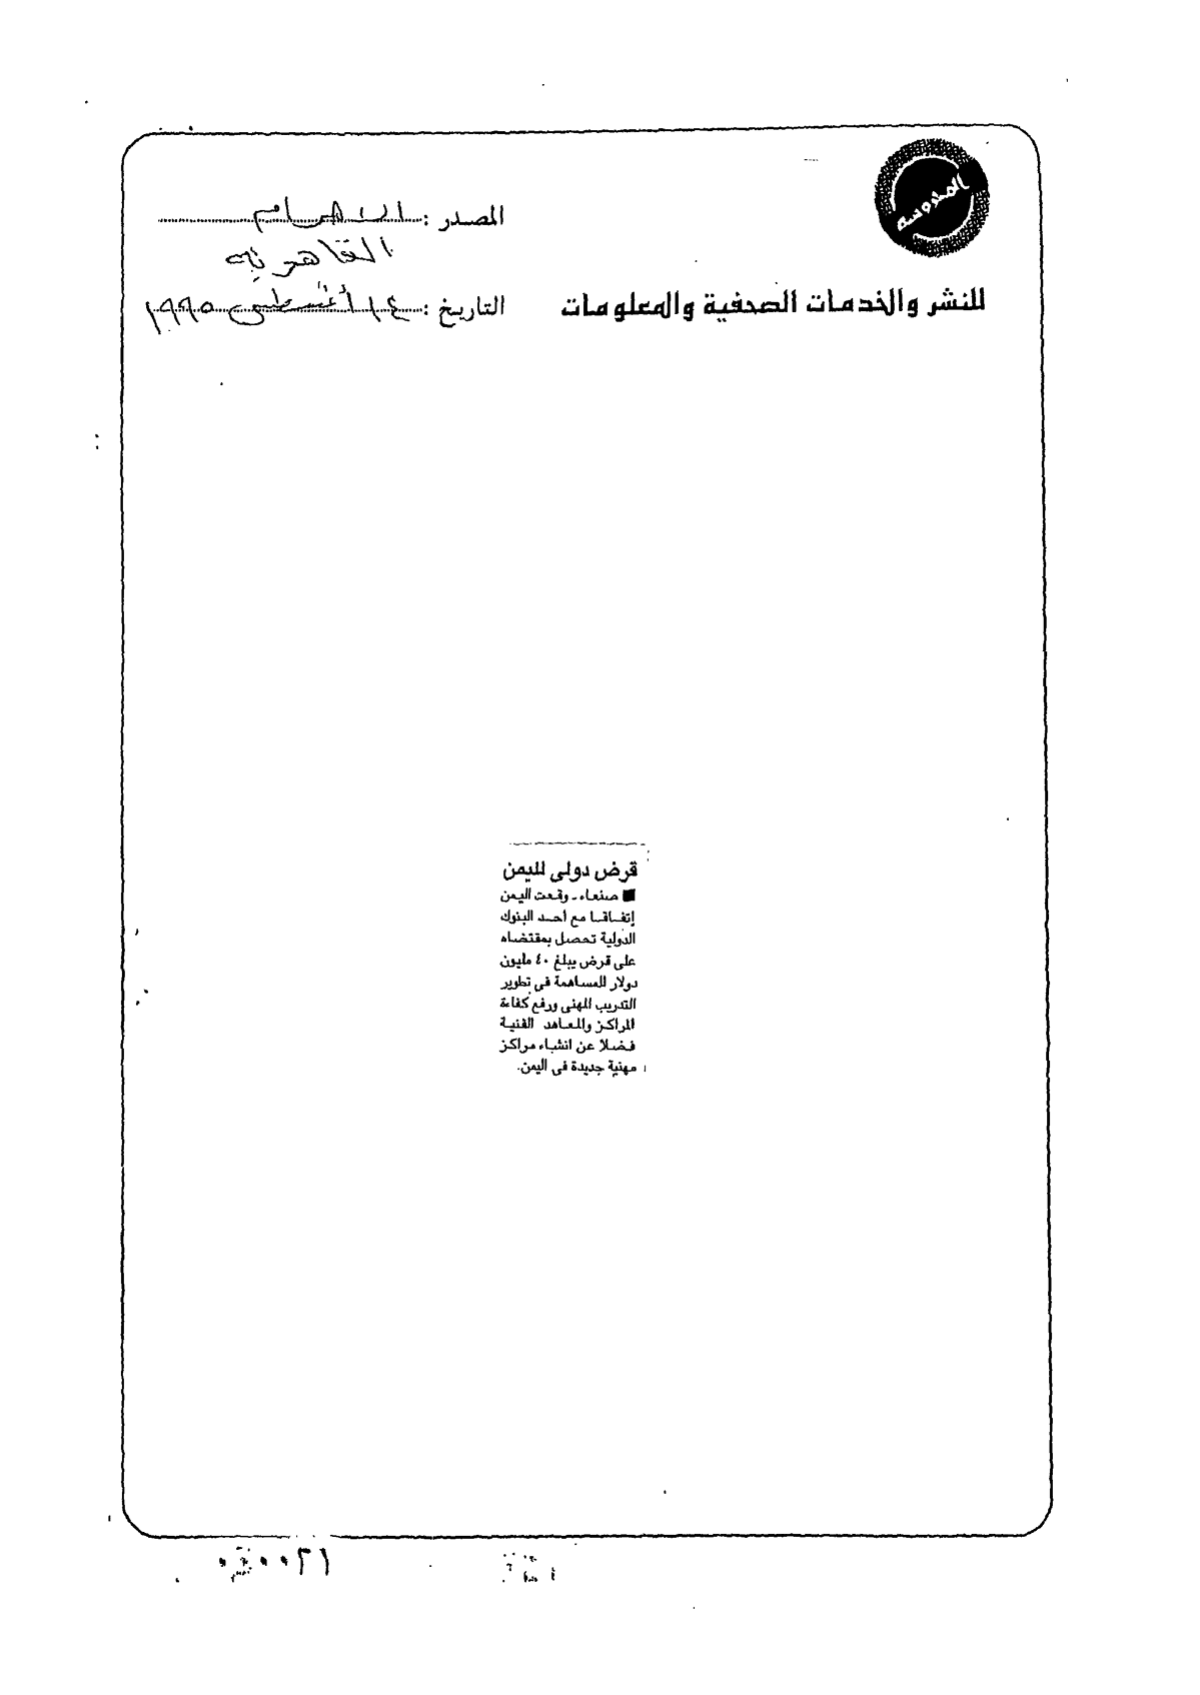 المحروسة
المصدر : الأهرام
القاهرية
للنشر والخدمات الصحفية والمعلومات
التاريخ : ١٤ أغسطس ١٩٩٥
قرض دولى لليمن
■ صنعاء ـ وقعت اليمن
إتفاقا مع أحد البنوك
الدولية تحصل بمقتضاه
على قرض يبلغ ٤٠ مليون
دولار للمساهمة فى تطوير
التدريب المهنى ورفع كفاءة
المراكز والمعاهد الفنية
فضلا عن انشاء مراكز
مهنية جديدة فى اليمن.